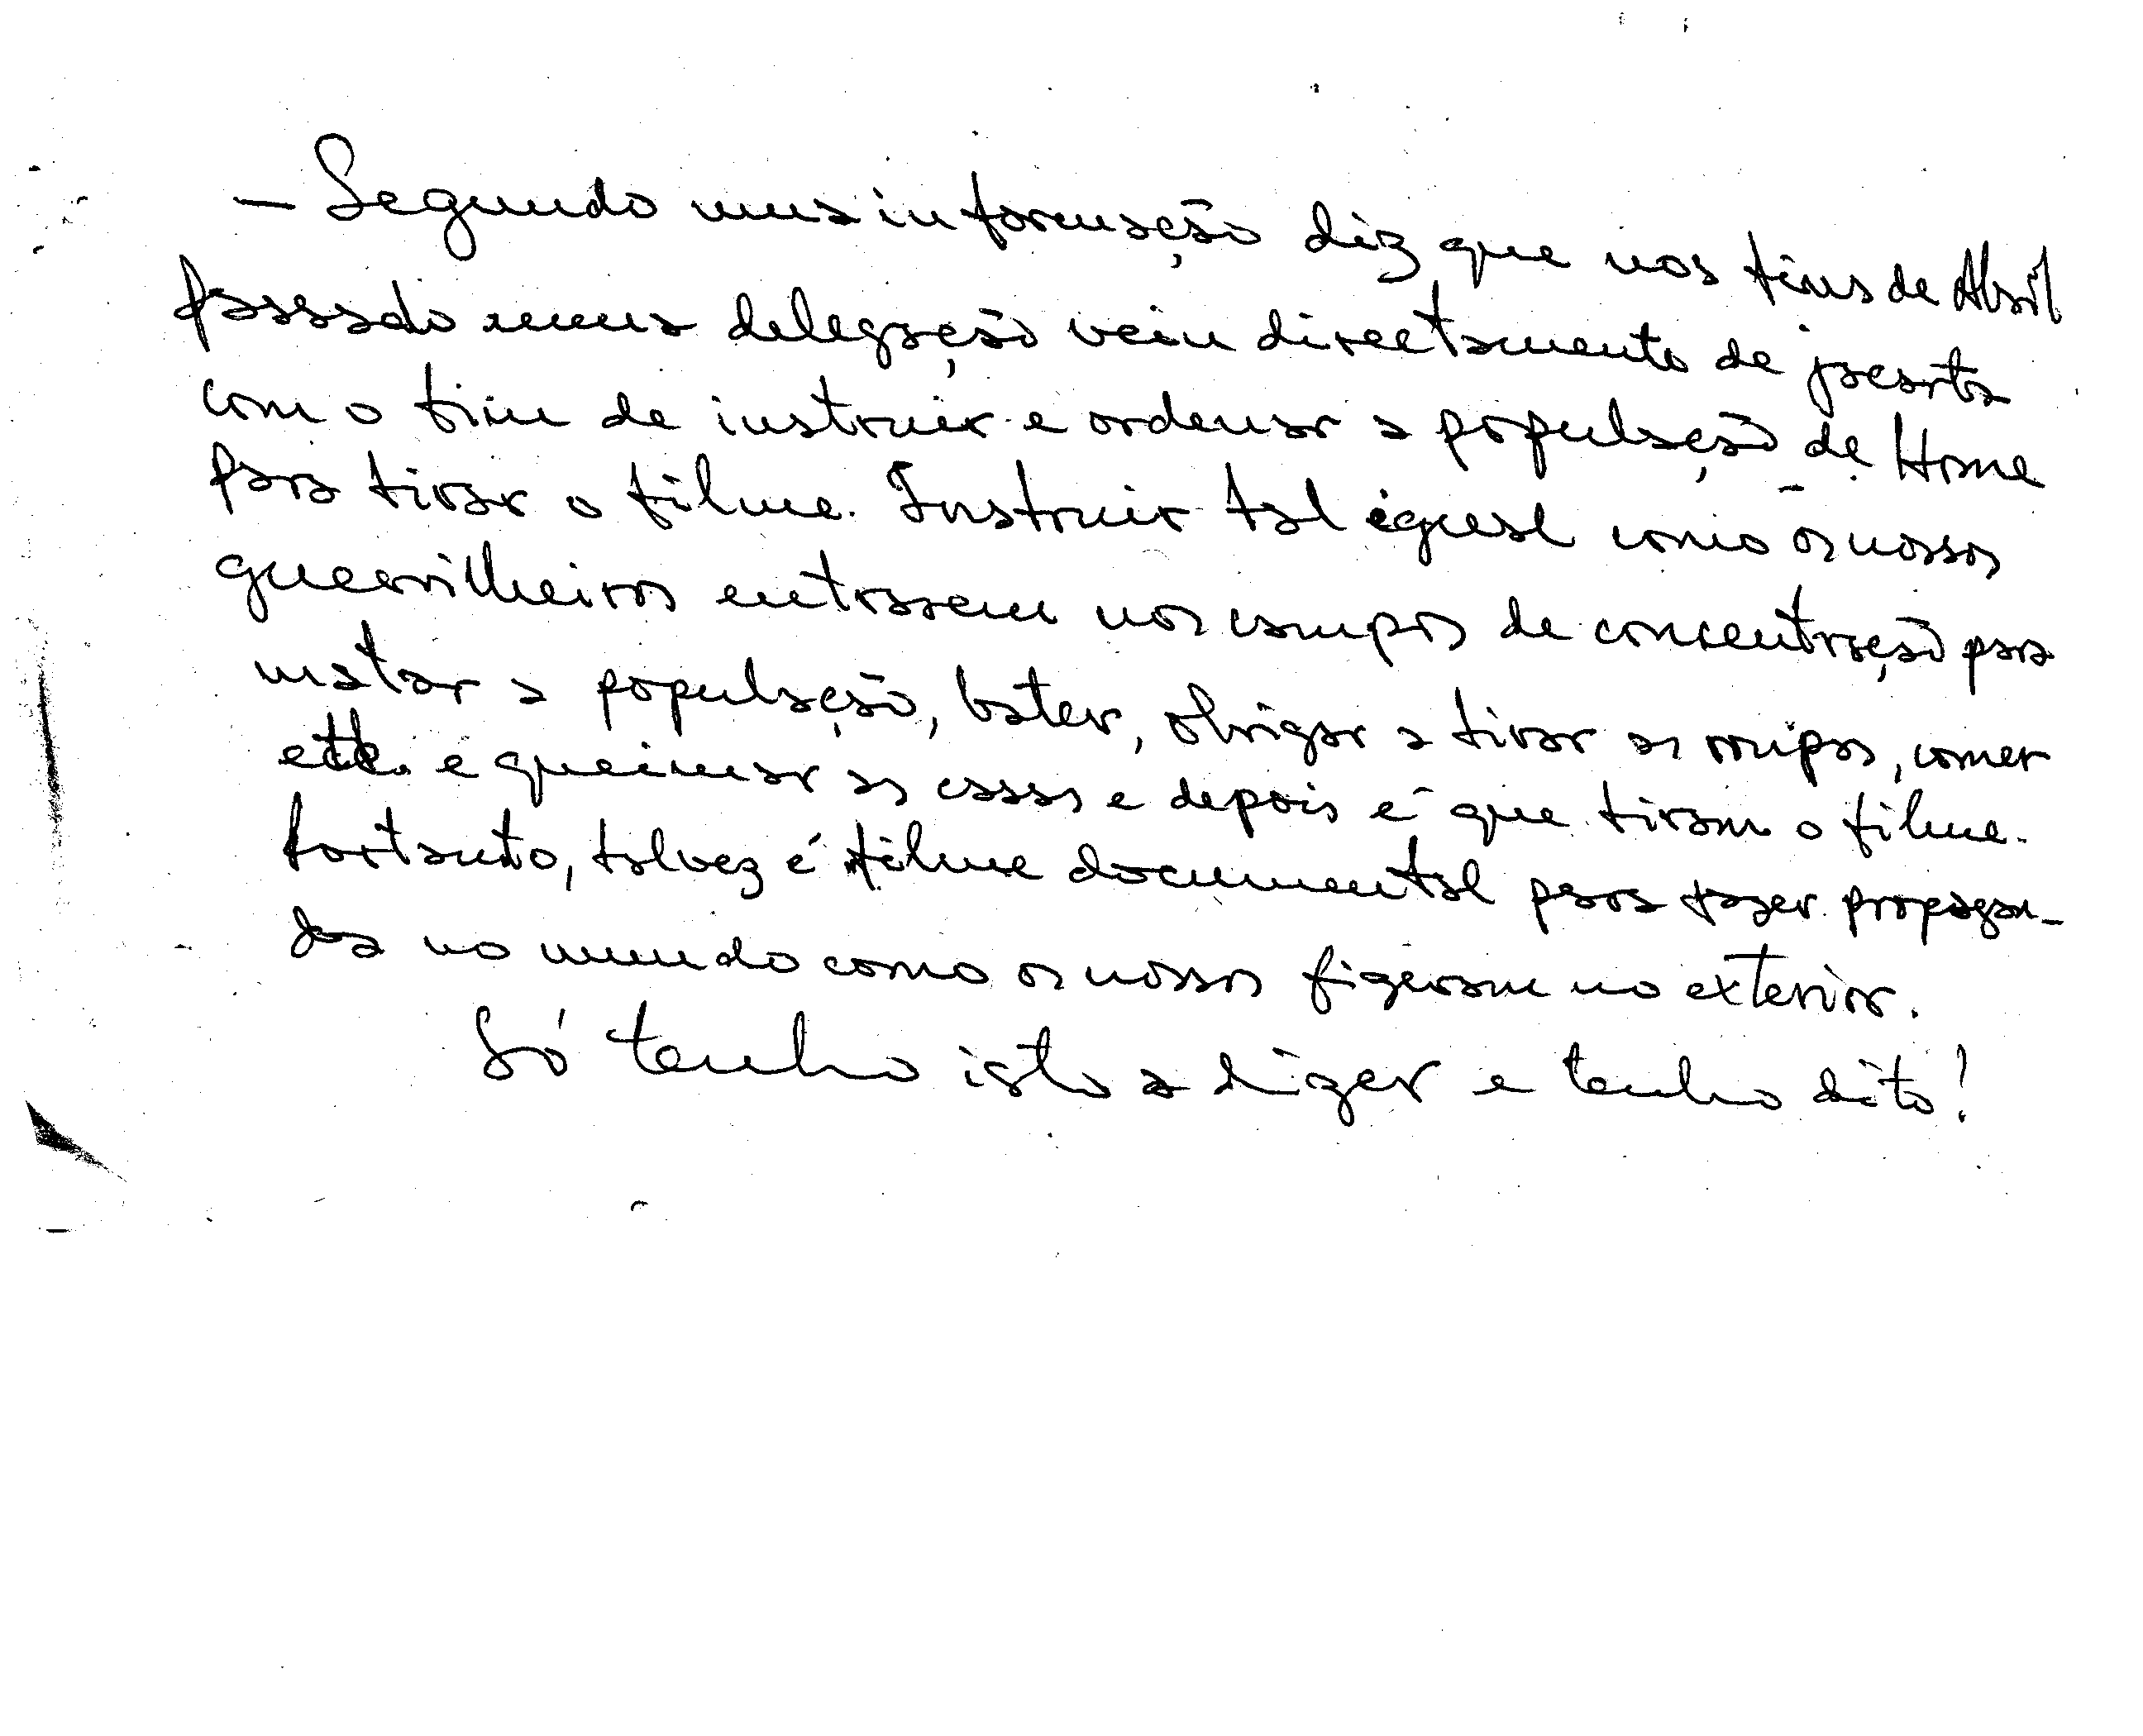 — Segundo uma informação diz que nos fins de Abril
passado uma delegação veiu directamente de jacarta
com o fim de instruir e ordenar a população de Home
para tirar o filme. Instruir tal igual como os nossos
guerrilheiros entrassem nos campos de concentração para
matar a população, bater, obrigar a tirar as roupas, comer
etc. e queimar as casas e depois é que tiram o filme.
Portanto, talvez é filme documental para fazer propagan-
da no mundo como os nossos fizeram no exterior.
Só tenho isto a dizer e tenho dito!